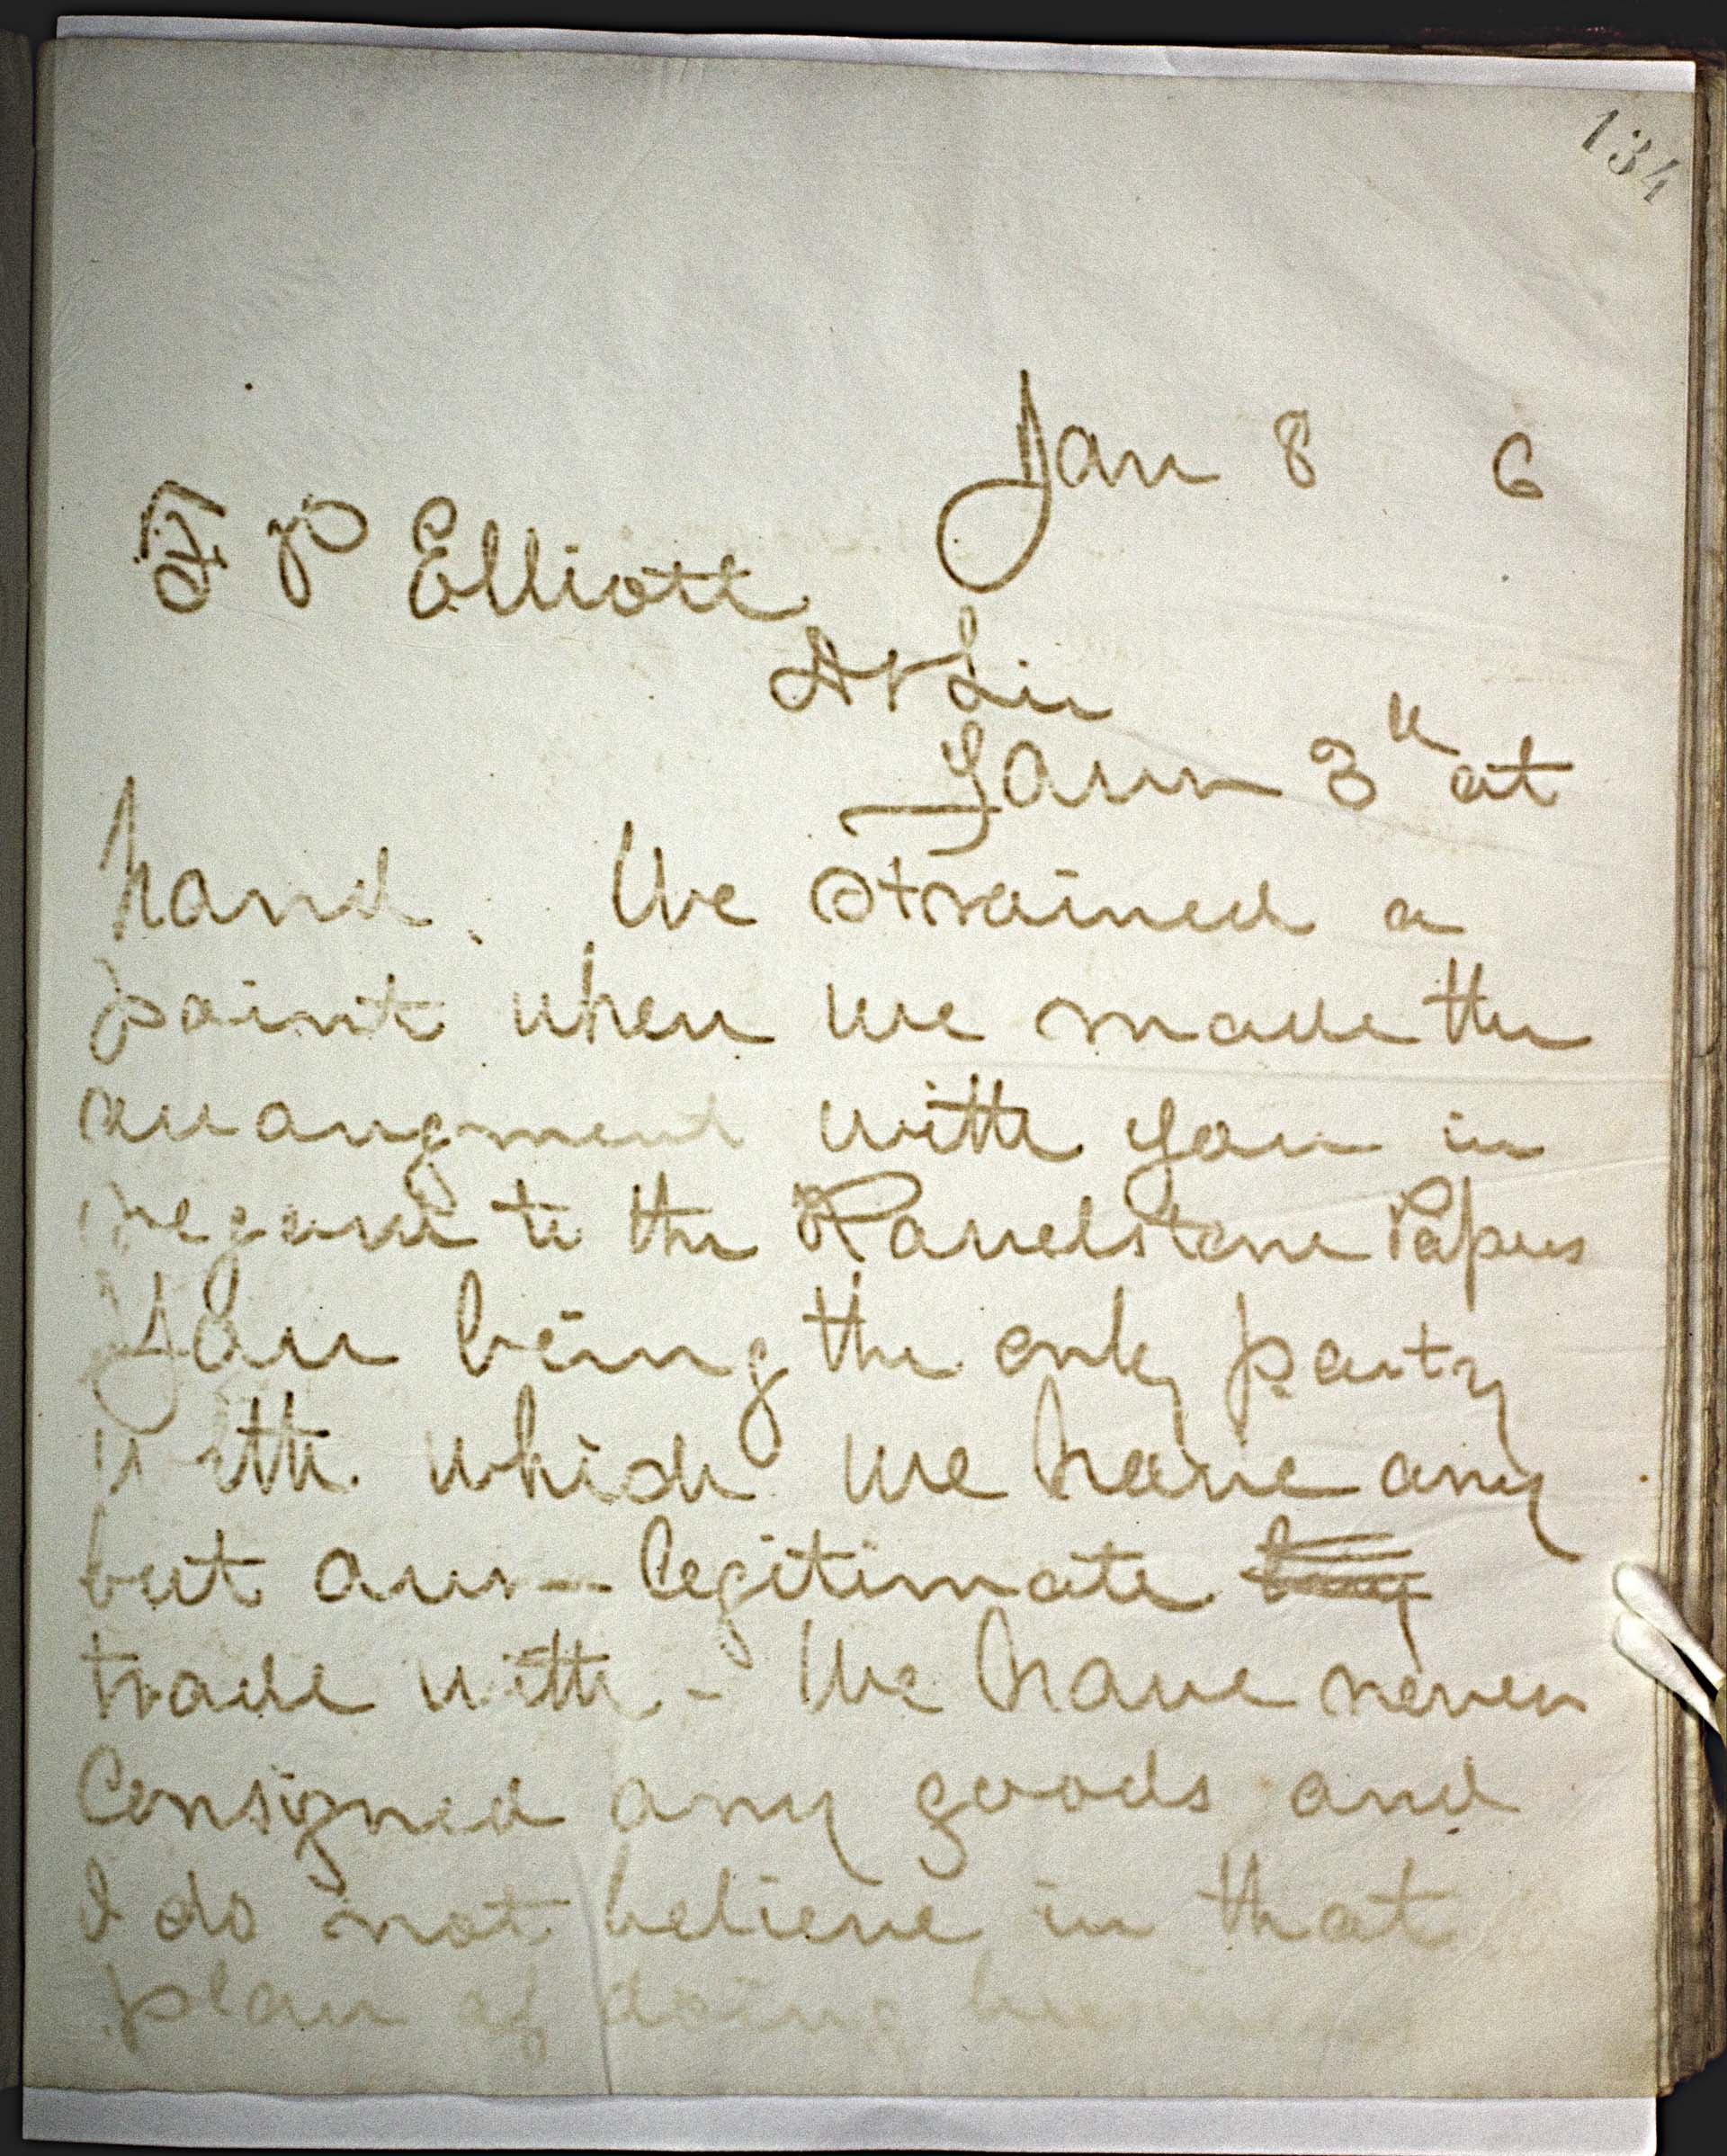 134
Jan 8 6
F P Elliott
Dr Sir
Yours 3d at
hand. We strained a
point when we made the
arrangment with you in
regard to the Ravelstone Papers
You being the only party
with which we have any
but our legitimate
trade with - We have never
Consigned any goods and
I do not believe in that
plan of doing